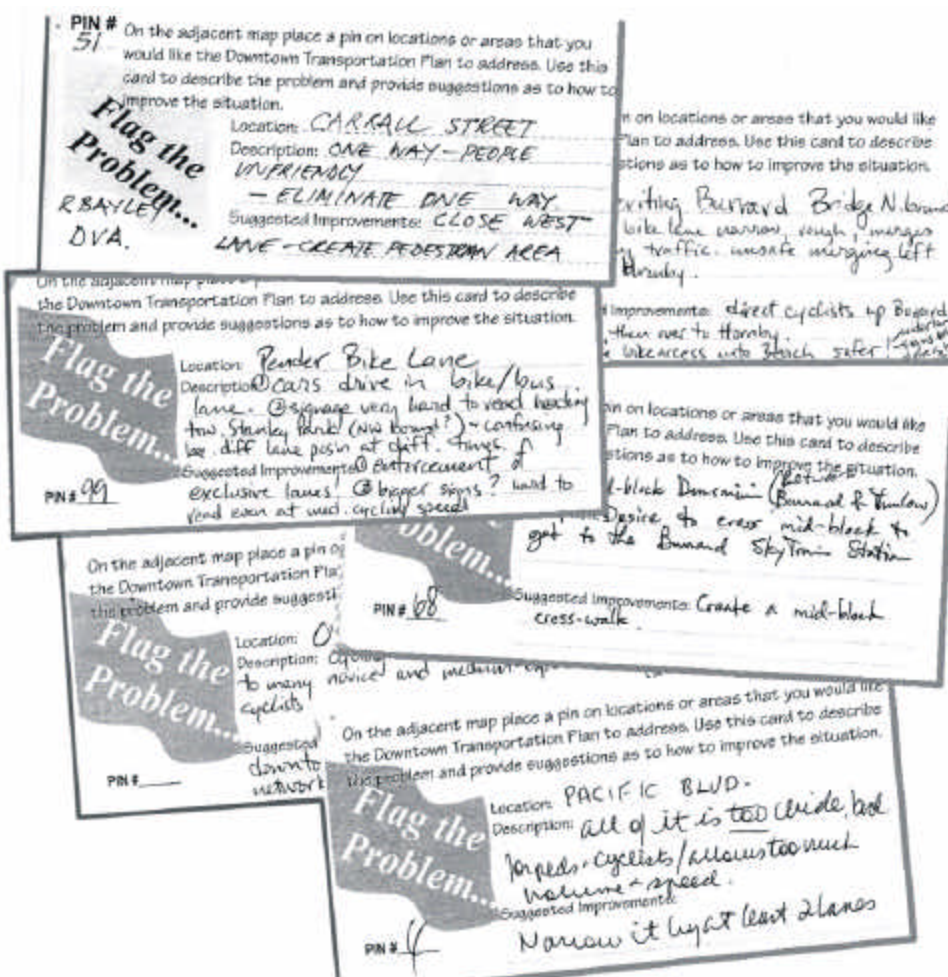 PIN #
51
On the adjacent map place a pin on locations or areas that you
would like the Downtown Transportation Plan to address. Use this
card to describe the problem and provide suggestions as to how to
improve the situation.
Flag the
Problem...
Location: CARRALL STREET
Description: ONE WAY - PEOPLE
UNFRIENDLY
- ELIMINATE ONE WAY
Suggested Improvements: CLOSE WEST
LANE - CREATE PEDESTRIAN AREA
R BAYLEY
DVA.
n on locations or areas that you would like
Plan to address. Use this card to describe
stions as to how to improve the situation.
exiting Burrard Bridge N.
bike lane narrow, rough, merges
traffic. unsafe merging left
Hornby.
Improvements: direct cyclists up Burrard
then over to Hornby.
bike access onto safer!
On the adjacent map place a
the Downtown Transportation Plan to address. Use this card to describe
the problem and provide suggestions as to how to improve the situation.
Flag the
Problem...
Location: Pender Bike Lane
Description: ① cars drive in bike/bus
lane. ② signage very hard to read heading
tow. Stanley Park (NW bound?) - confusing
diff lane at diff. times
Suggested Improvements: ① enforcement of
exclusive lanes! ② bigger signs? hard to
read even at med. cycling speed
PIN # 99
in on locations or areas that you would like
Plan to address. Use this card to describe
stions as to how to improve the situation.
-block Dunsmuir (Between
Burrard & Thurlow)
Desire to cross mid-block to
get to the Burrard SkyTrain Station
oblem...
PIN # 68
Suggested Improvements: Create a mid-block
cross-walk
On the adjacent map place a pin o
the Downtown Transportation Pla
the problem and provide suggesti
Flag the
Problem...
Location:
Description:
to many novice and medium
cyclists
Suggested
downto
network
PIN #
On the adjacent map place a pin on locations or areas that you would like
the Downtown Transportation Plan to address. Use this card to describe
the problem and provide suggestions as to how to improve the situation.
Flag the
Problem...
Location: PACIFIC BLVD.
Description: all of it is too wide, bad
for peds + cyclists / allows too much
volume + speed.
Suggested Improvements:
Narrow it by at least 2 lanes
PIN #